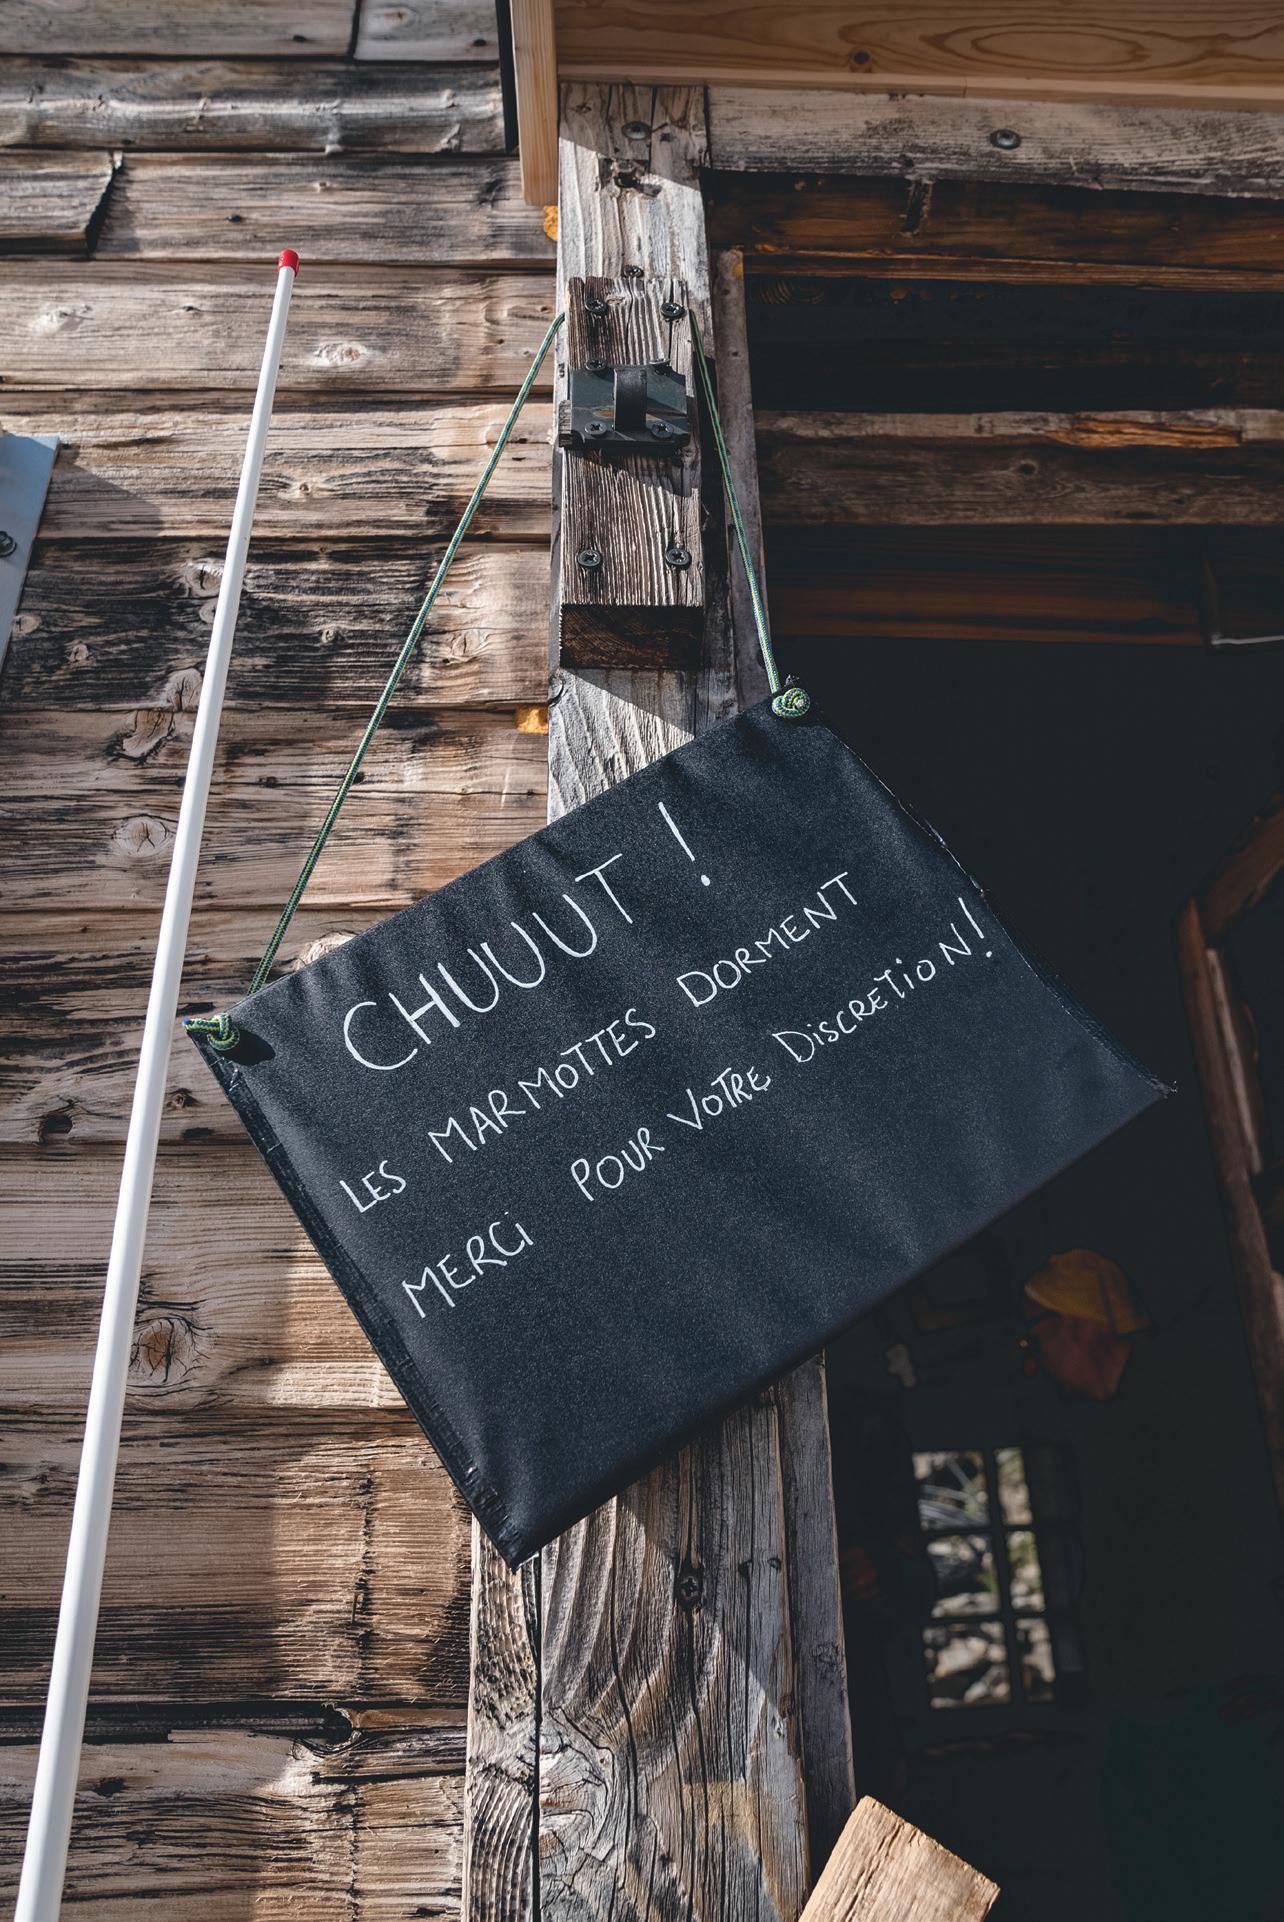 CHUUUT !
LES MARMOTTES DORMENT
MERCi POUR VOTRE DiSCRETioN!